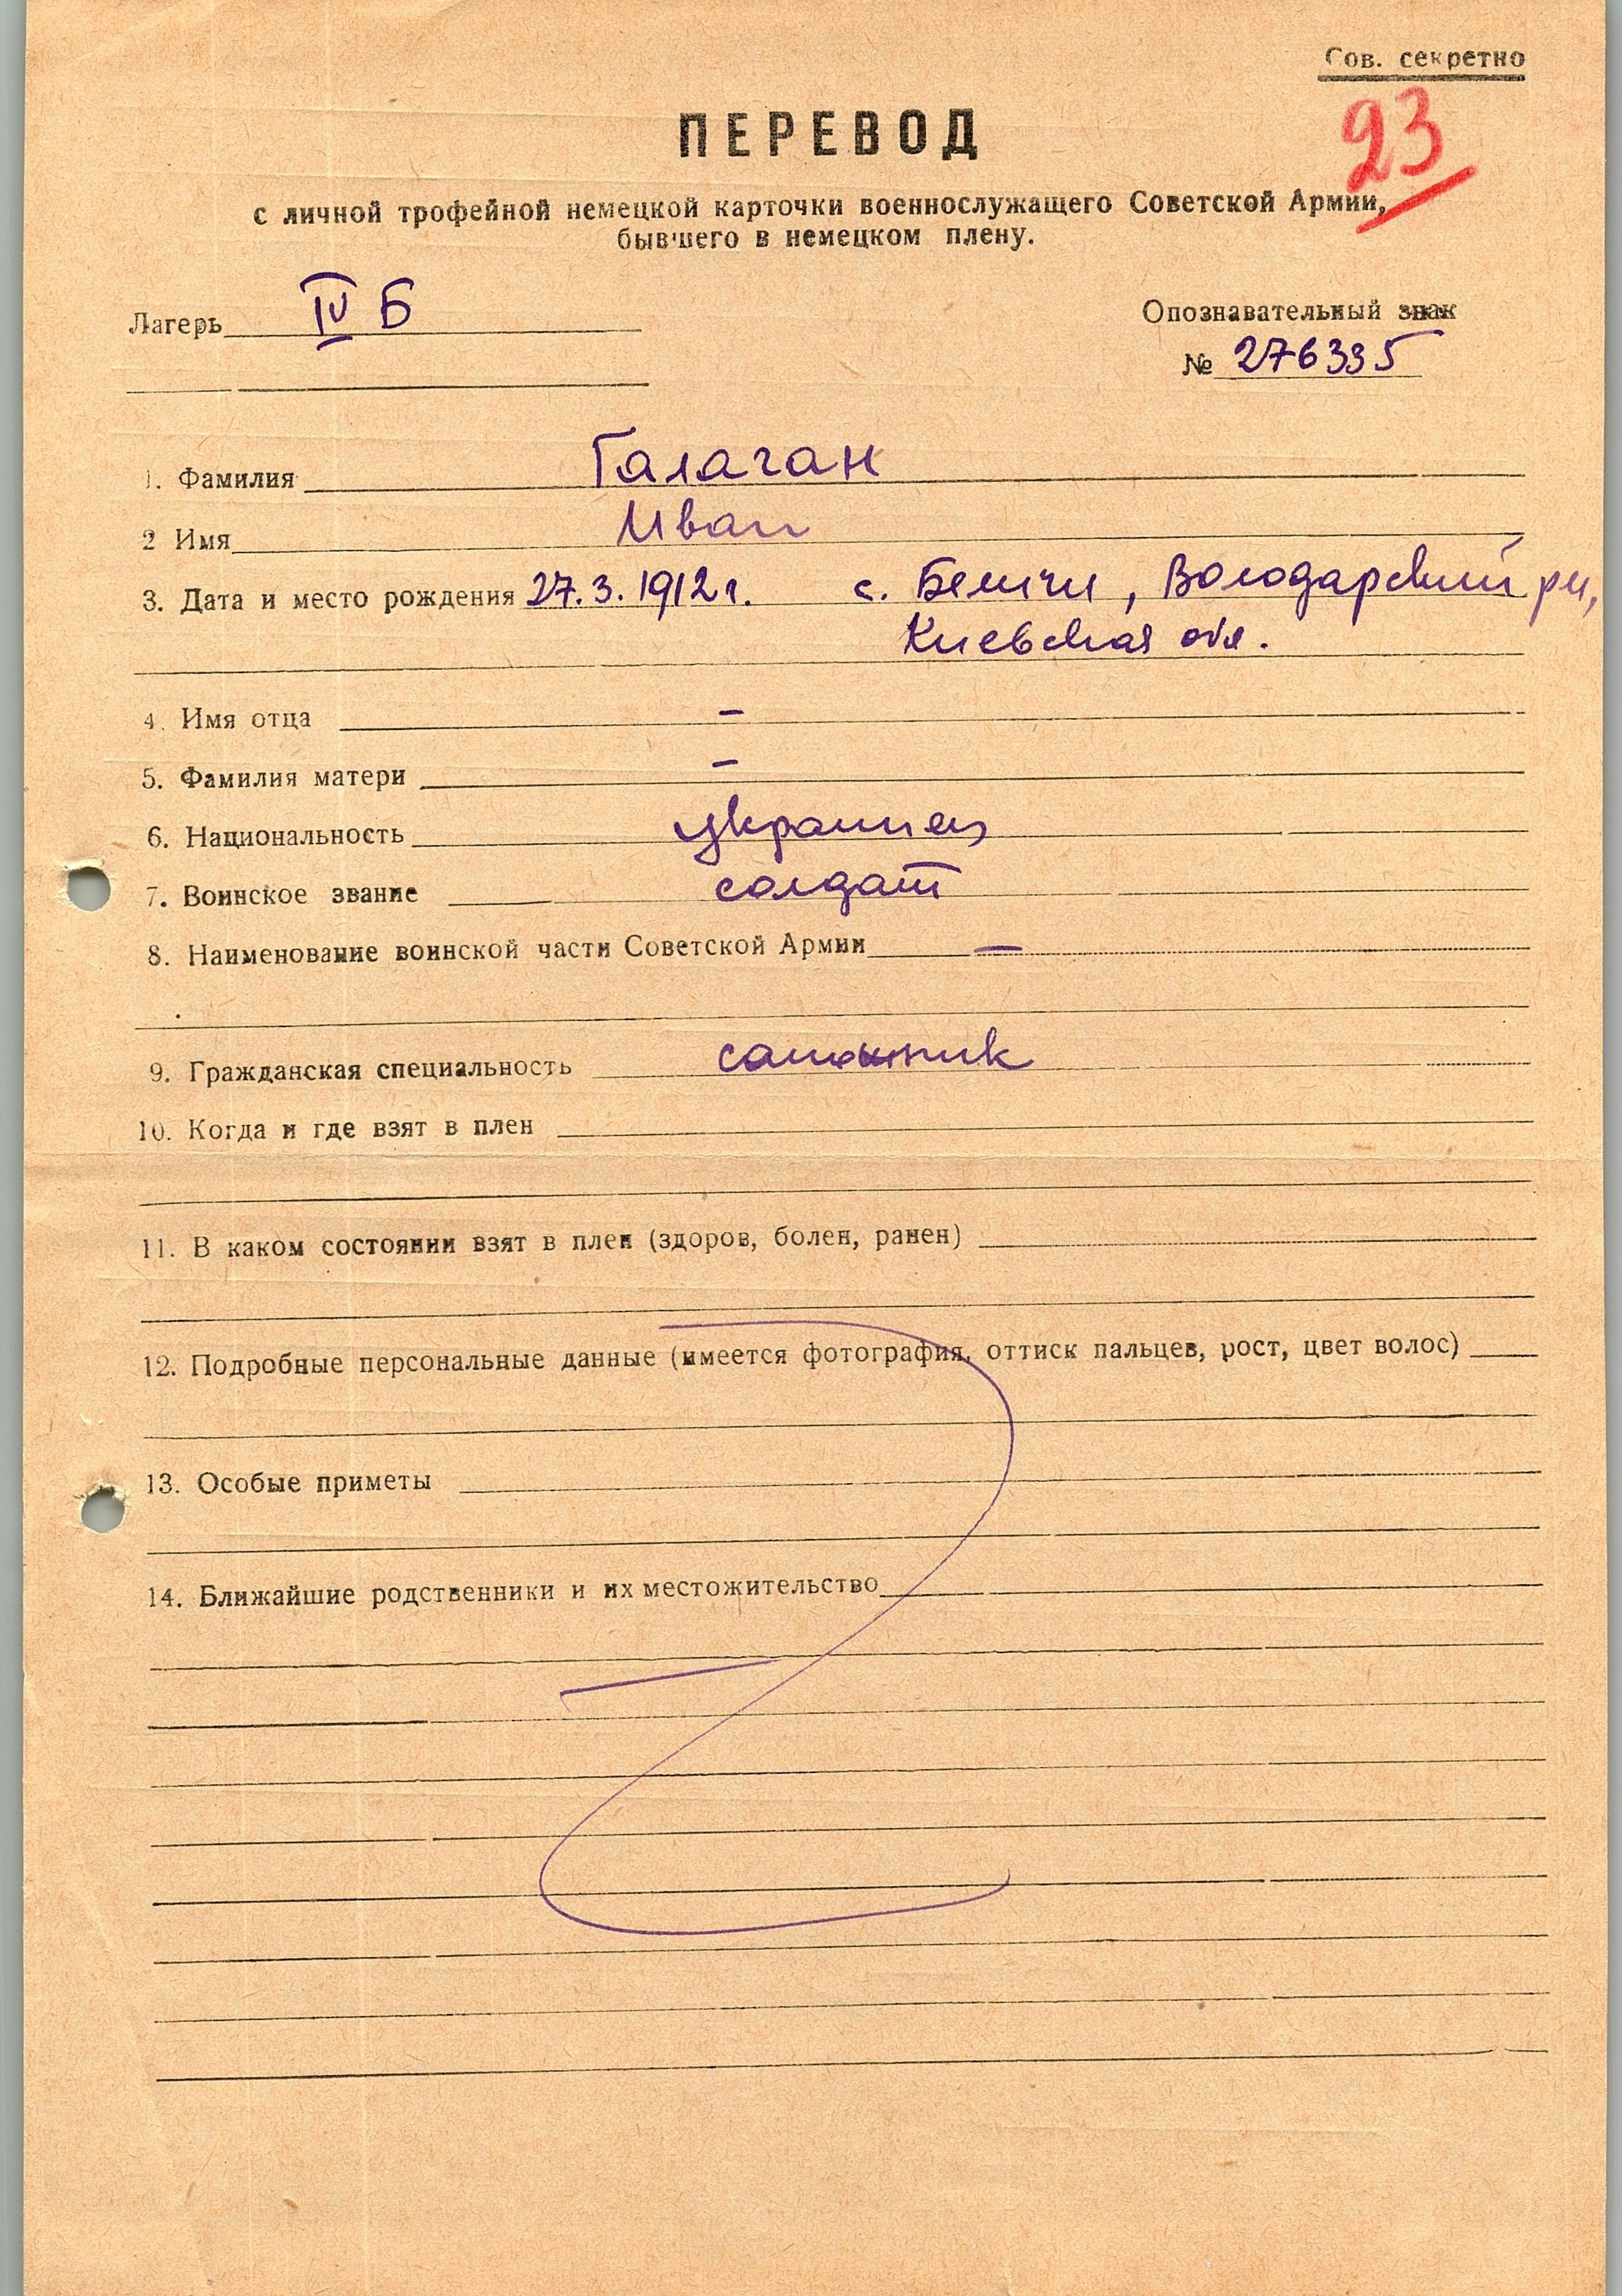 Сов. секретно
23
ПЕРЕВОД
с личной трофейной немецкой карточки военнослужащего Советской Армии,
бывшего в немецком плену.
Лагерь IV Б
Опознавательный знак
№ 276335
1. Фамилия Галаган
2 Имя Иван
3. Дата и место рождения 27.3.1912 г. с. Беличи, Володарский рн,
Киевская обл.
4. Имя отца –
5. Фамилия матери –
6. Национальность украинец
7. Воинское звание солдат
8. Наименование воинской части Советской Армии –
9. Гражданская специальность
10. Когда и где взят в плен
11. В каком состоянии взят в плен (здоров, болен, ранен)
12. Подробные персональные данные (имеется фотография, оттиск пальцев, рост, цвет волос)
13. Особые приметы
14. Ближайшие родственники и их местожительство